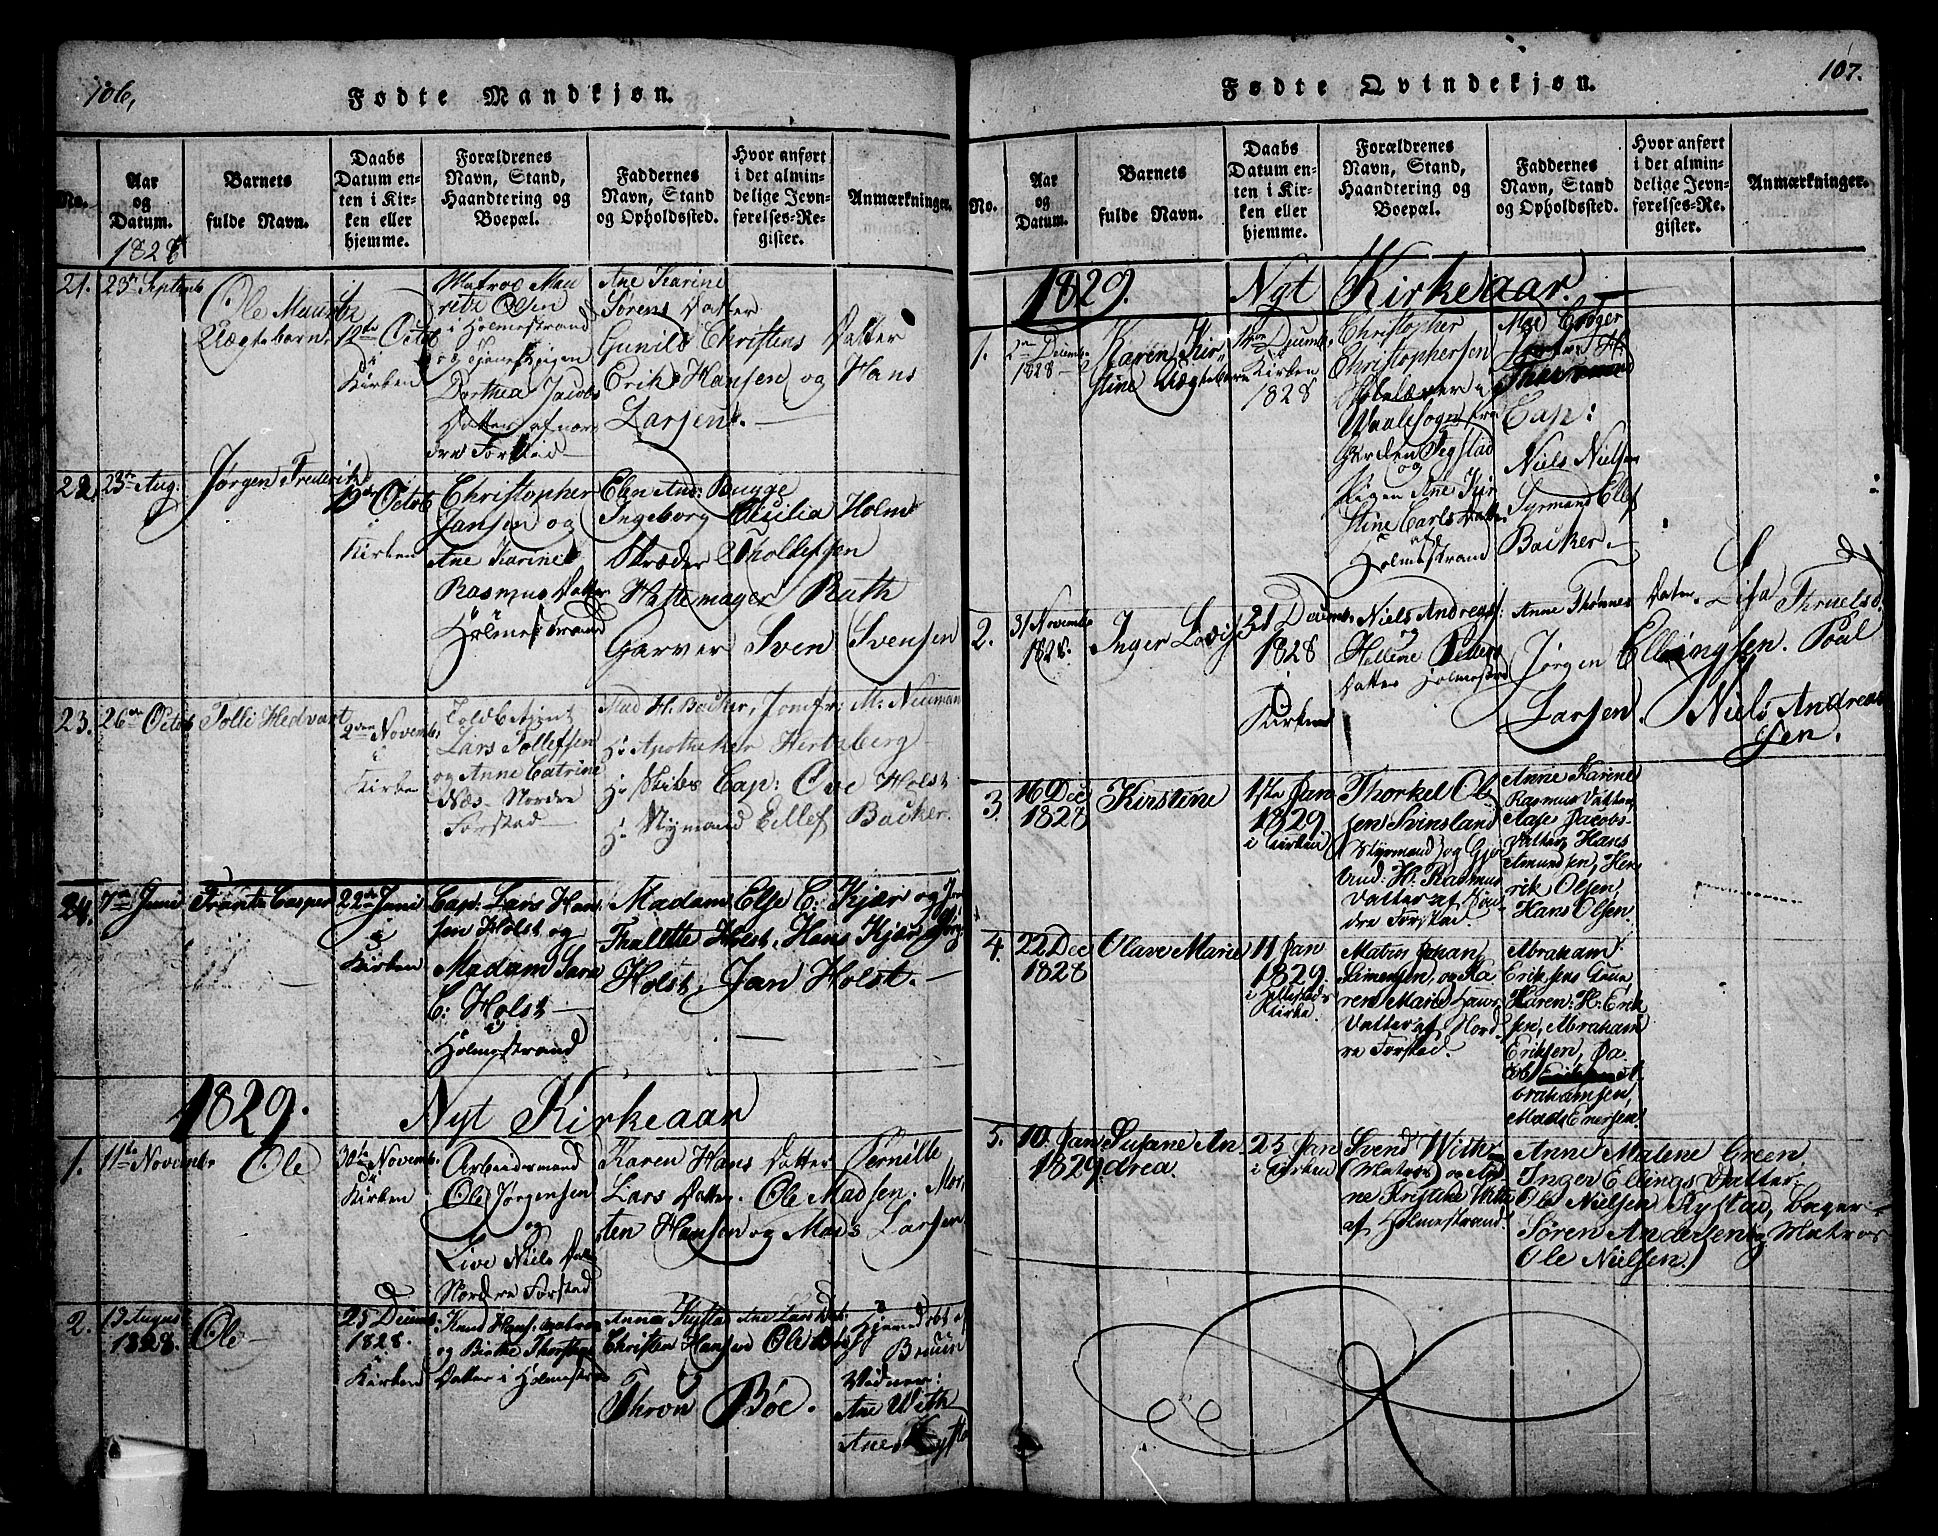 106,
Fødte Mandkjøn.
No.
Aar
og
Datum.
1828
Barnets
fulde Navn.
Daabs
Datum en-
ten i Kir-
ken eller
hjemme.
Forældrenes
Navn, Stand,
Haandtering og
Boepæl.
Faddernes
Navn, Stand
og Opholdssted.
Hvor anført
i det almin-
delige Jevn-
førelses-Re-
gister.
Anmærkninger.
21.
23 Septemb
Ole Mauritz
Uægtebarn
12te Octob
i
Kirken
Matros Mau
ritz Olsen
i Holmestrand
og Pigen
Dorthea Jacobs
Datter af nor
dre Forstad
Ane Karine
Sørens Datter
Gunild Christens Datter
Erik Hansen og Hans
Larsen.
22.
23 Aug:
Jørgen Frederik
19 Octob
i
Kirken
Christopher
Jansen og
Ane Karine
Rasmus Datter
Holmestrand
Elen Ans: Bugge
Ingeborg Cicilia Holm
Skræder Tholefsen
Hattemager Ruth
Garver Sven Svensen
23.
26 Octob
Tolli Hedvart
2den Novemb.
i
Kirken
Lars Tollefsen
og Anne Catrine
Næs - Nordre
Forstad
Mad H. Backer, Jomfr: M. Neumann
Hr Apotheker Hertzberg
Hr Skibs Cap: Ove Holst
Hr Styrmand Eillef Backer.
24.
7 Juni
Frants Casper
22 Juni
i
Kirken
Cap: Lars Han
sen Holst og
Madam Sara
C: Holst
i
Holmestrand
Madam Else C: Kjær og
Thalette Holst, Hans Kjær
Holst, Jan Holst.
1829. Nyt Kirkeaar
1.
11te Novemb.
Ole
30te Novemb.
i
Kirken
Arbeidsmand
Ole Jørgensen
og
Live Niels Datter
Nordre Forstad
Karen Hans Datter Pernille
Lars Datter. Ole Madsen. Mor
ten Hansen og Mads Larsen
2.
19 August
1828.
Ole
25 Decemb.
1828.
i
Kirken
Knud Hans: matros
og Birthe Thorstens
Datter i Holmestrand
Anne Kystad Ane Lars Dat
Christen Hansen Ole
Thron Bøe.
Hjemedøbt af
Bruun
Vidner:
Ane With
Ane Kystad
107.
Fødte Qvindekjøn.
No.
Aar
og
Datum.
Barnets
fulde Navn.
Daabs
Datum en-
ten i Kir-
ken eller
hjemme.
Forældrenes
Navn, Stand,
Haandtering og
Boepæl.
Faddernes
Navn, Stand
og Opholdssted.
Hvor anført
i det almin-
delige Jevn-
førelses-Re-
gister.
Anmærkninger.
1829. Nyt Kirkeaar.
1.
Decemb.
1828
Karen Kir
stine Uægtebarn
Decemb.
Kirken
1828
Christopher
Christophersen
Skolelærer i
Vaale sogn fra
Gaarden Sigstad
og
Pigen Ane Kir
stine Carls Datter
af
Holmestrand
Mad
Cap:
Niels Nielsen
Styrmand Ellef
Backer.
2.
31 Novemb
1828.
Inger Lovise
21 Decemb.
1828
i
Kirken
Niels Andreas:
og
Hellene Peders
Datter Holmestrand
Anne Thønnes Datter. Lisa Thruelsd.
Jørgen Ellingsen. Poul
Larsen. Niels Andrea
sen.
3.
16 Dec
1828
Kirstine
1ste Jan
1829
i Kirken
Thorkel Ol
sen Svinsland
(Styrmand) og Gjer
trud: H. Rasmus
Datter af Søn
dre Forstad.
Anne Karine
Rasmus Datter,
Aase Jacobs-
Datter, Hans
Amundsen, Hen
rik Olsen,
Hans Olsen.
4.
22 Dec
1828
Olave Marie
11 Jan
1829.
i Hillestads
Kirke.
Matros Johan
Simensen, og Ka
ren Marie Laurs
Datter af Nord
re Forstad.
Abraham
Eriksens Grun
Karen: H: Erik
sen, Abraham
Eriksen, Ja
cob A
brahamsen,
Mads Enersen.
5.
10. Jan
1829.
Susane An
drea.
25 Jan
i Kirken
Svend With
(Matros) og An
ne Kristine With
af Holmestrand.
Anne Malene Green
Inger Ellings Datter.
Ole Nielsen Kystad, Bager
Søren Andersen og Matros
Ole Nielsen.